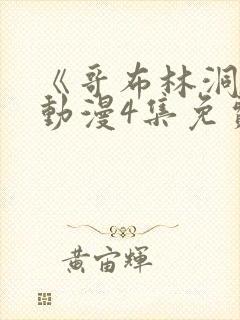 《哥布林洞
動漫4集免
黃宙輝